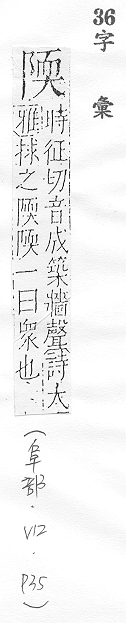 36字彙
陾
時征切音成築牆聲詩大
雅捄之陾陾一曰眾也
(阜部．V12．P35)